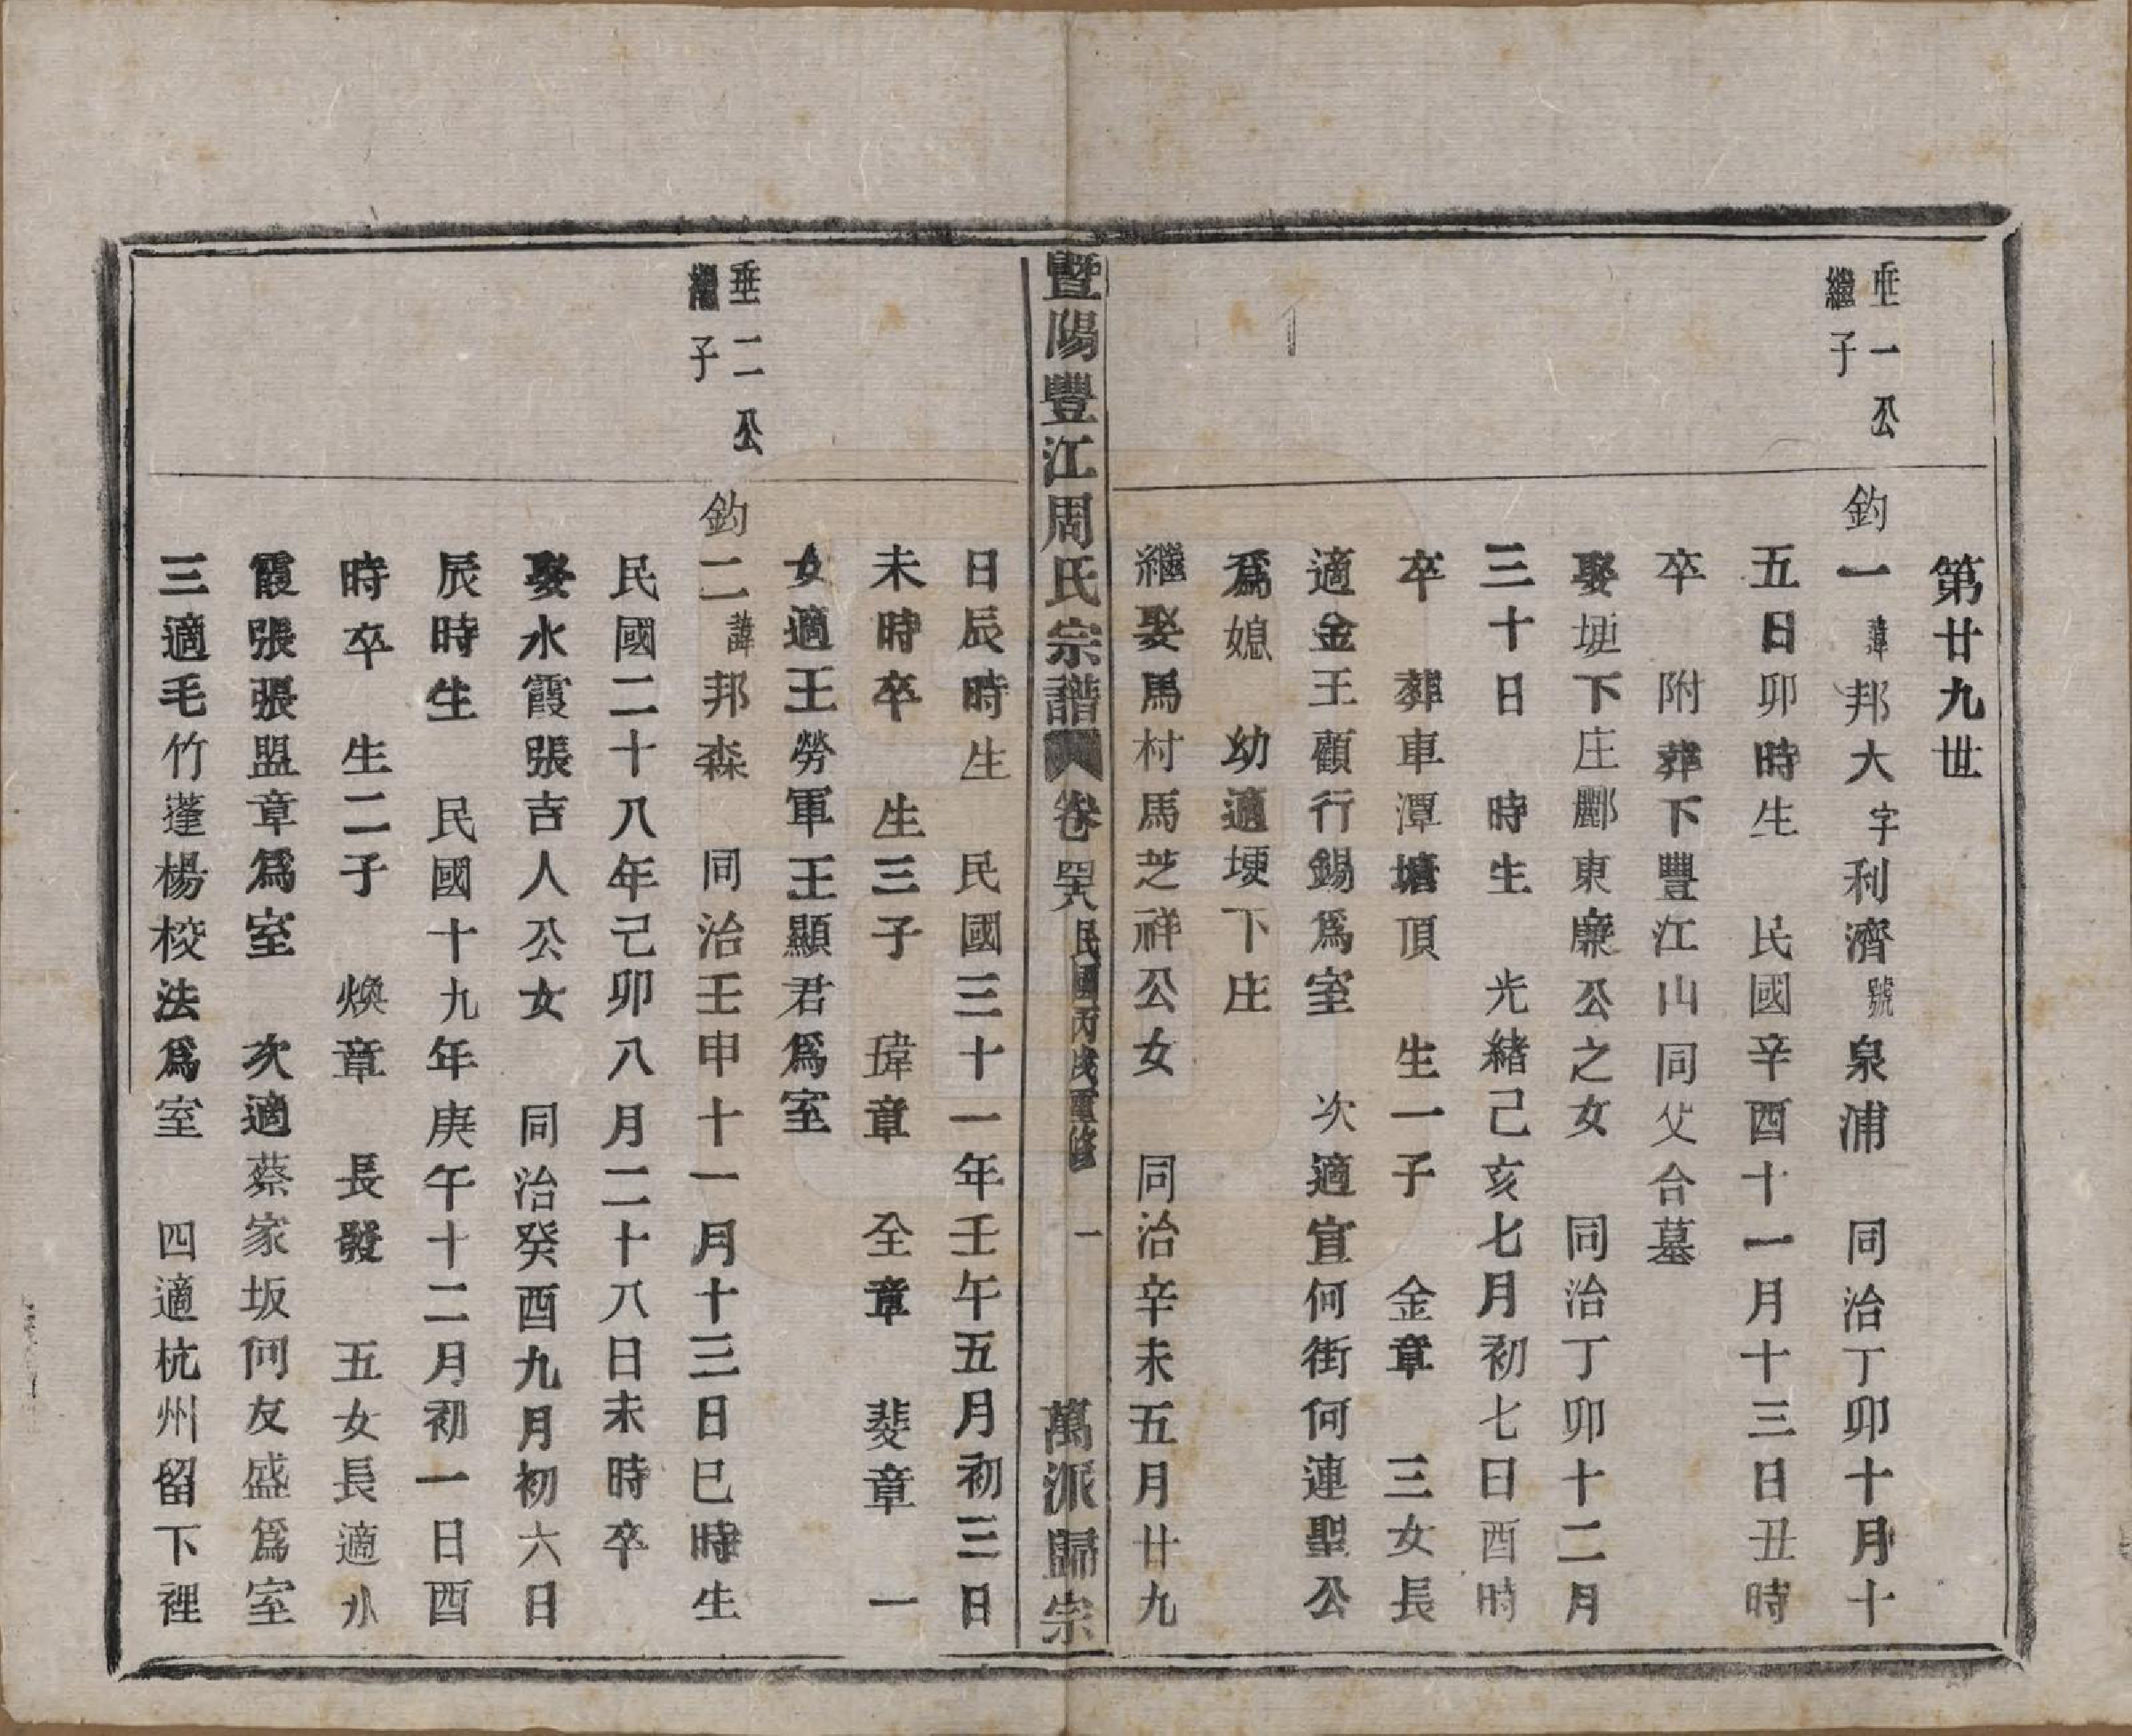 第廿九世
垂一公
繼子
鈞一諱邦大字利濟號泉浦　同治丁卯十月十
五日卯時生　民國辛酉十一月十三日丑時
卒　附葬下豐江山同父合墓
娶埂下庄酈東廉公之女　同治丁卯十二月
三十日　時生　光緒己亥七月初七日酉時
卒　葬車潭塘頂　生一子　金章　三女長
適金王顧行錫爲室　次適宣何街何連聖公
爲媳　幼適埂下庄
繼娶馬村馬芝祥公女　同治辛未五月廿九
暨陽豐江周氏宗譜　卷罢　民國丙戌重修　一　萬派歸宗
日辰時生　民國三十一年壬午五月初三日
未時卒　生三子　瑋章　全章　斐章　一
女適王勞軍王顯君爲室
垂二公
繼子
鈞二諱邦森　同治壬申十一月十三日巳時生
民國二十八年己卯八月二十八日未時卒
娶水霞張吉人公女　同治癸酉九月初六日
辰時生　民國十九年庚午十二月初一日酉
時卒　生二子　煥章　長發　五女長適水
霞張張盟章爲室　次適蔡家坂何友盛爲室
三適毛竹蓬楊校法爲室　四適杭州留下裡